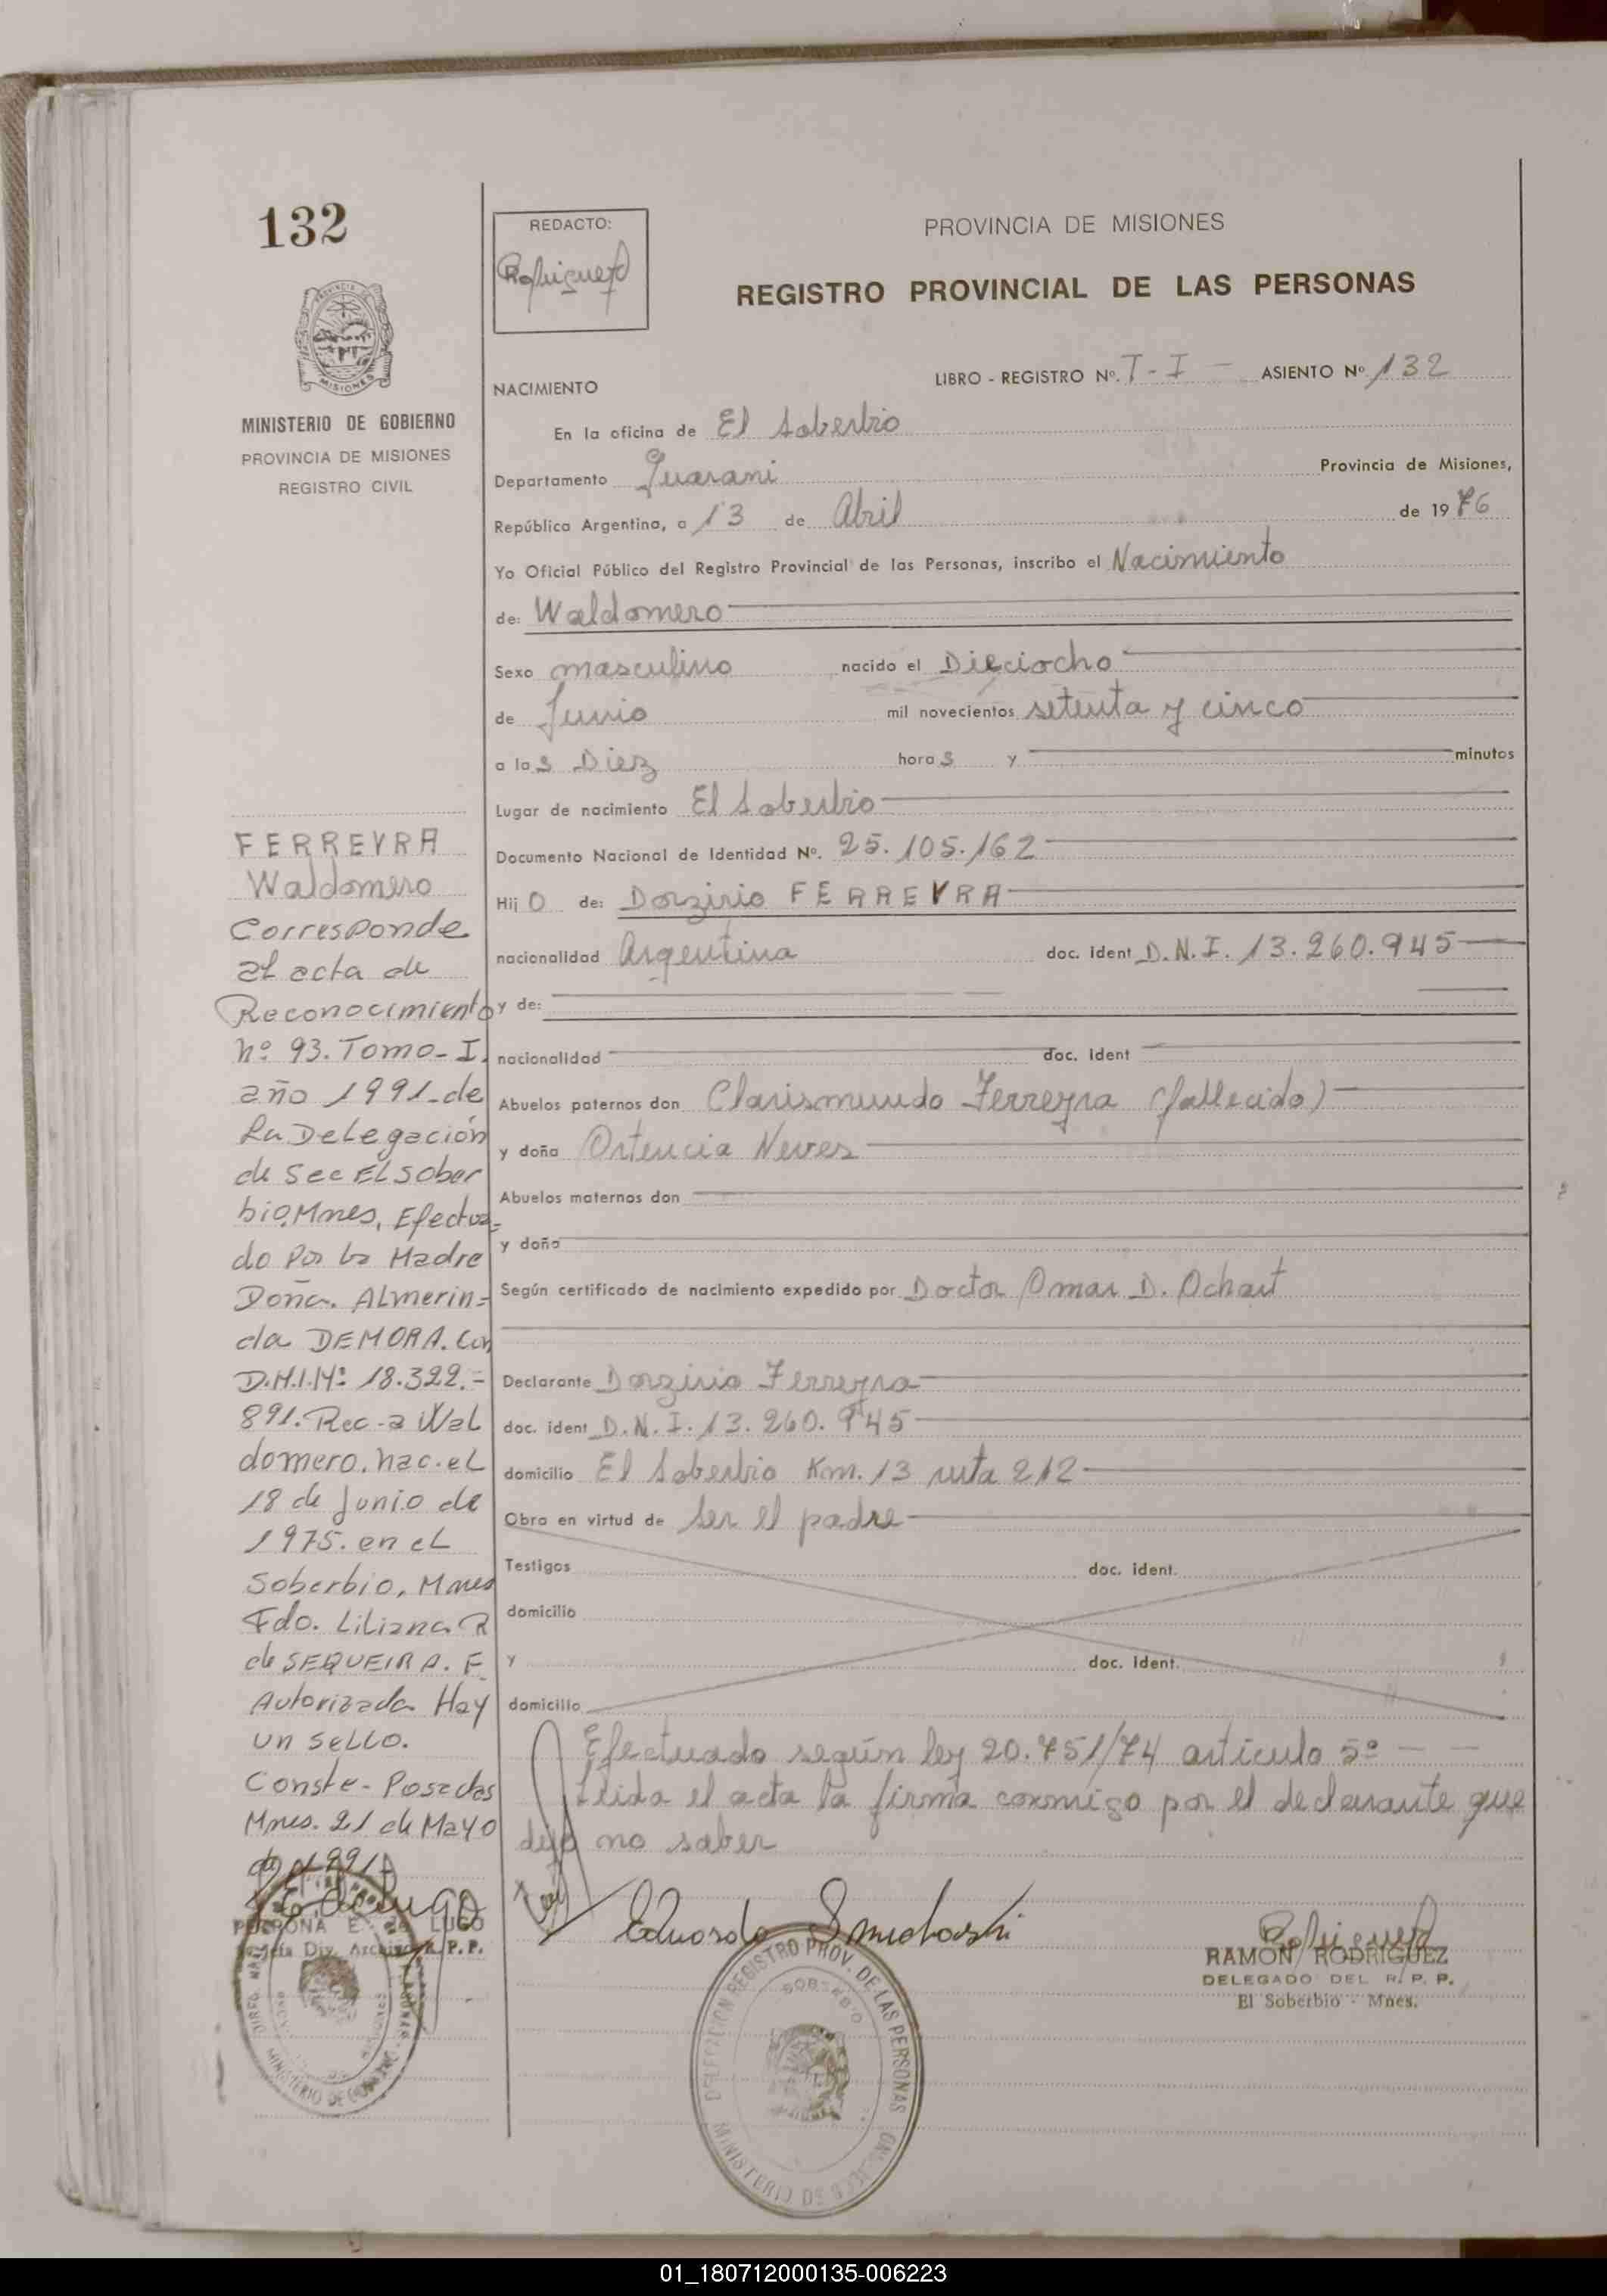 132
MISIONES
MINISTERIO DE GOBIERNO
PROVINCIA DE MISIONES
REGISTRO CIVIL
FERREYRA
Waldomero
Corresponde
al acta de
Reconocimiento
nº 93. Tomo-I.
año 1991-de
La Delegación
de Sec El Sober
bio, Mnes, Efectua=
do Por la Madre
Doña. ALmerin=
da DEMORA. Con
D.N.I.Nº: 18.322.=
891. Rec-a Wal
domero. nac. eL
18 de Junio de
1975. en eL
Soberbio, Mnes
Fdo. Liliana R
de SEQUEIRA. F.
Autorizada Hay
un seLLo.
Conste- Posadas
Mnes. 21 de Mayo
de 1991
E. de LUGO
Jefa Div. Archivo R. P. P.
MINISTERIO DE GOBIERNO
REDACTO:
Rodriguez
PROVINCIA DE MISIONES
REGISTRO PROVINCIAL DE LAS PERSONAS
LIBRO - REGISTRO Nº. T-I - ASIENTO Nº 132
NACIMIENTO
En la oficina de El Soberbio
Departamento Guarani Provincia de Misiones,
República Argentina, a 13 de Abril de 1976
Yo Oficial Público del Registro Provincial de las Personas, inscribo el Nacimiento
de: Waldomero
Sexo masculino nacido el Dieciocho
de Junio mil novecientos setenta y cinco
a las Diez horas y minutos
Lugar de nacimiento El Soberbio
Documento Nacional de Identidad Nº. 25.105.162
Hijo de: Dorzirio FERREYRA
nacionalidad Argentina doc. ident D.N.I. 13.260.945
y de:
nacionalidad doc. ident
Abuelos paternos don Clarismundo Ferreyra (fallecido)
y doña Ortencia Neves
Abuelos maternos don
y doña
Según certificado de nacimiento expedido por Doctor Omar D. Ochart
Declarante Dorzirio Ferreyra
doc. ident D.N.I. 13.260.945
domicilio El Soberbio Km. 13 ruta 212
Obra en virtud de Ser el padre
Testigos doc. ident.
domicilio
y doc. ident.
domicilio
Efectuado según ley 20.751/74 artículo 5º - -
Leida el acta la firma conmigo por el declarante que
dijo no saber
Eduardo
Rodriguez
RAMON RODRIGUEZ
DELEGADO DEL R. P. P.
El Soberbio - Mnes.
DELEGACION REGISTRO PROV. DE LAS PERSONAS
SOBERBIO
MINISTERIO DE GOBIERNO
01_180712000135-006223